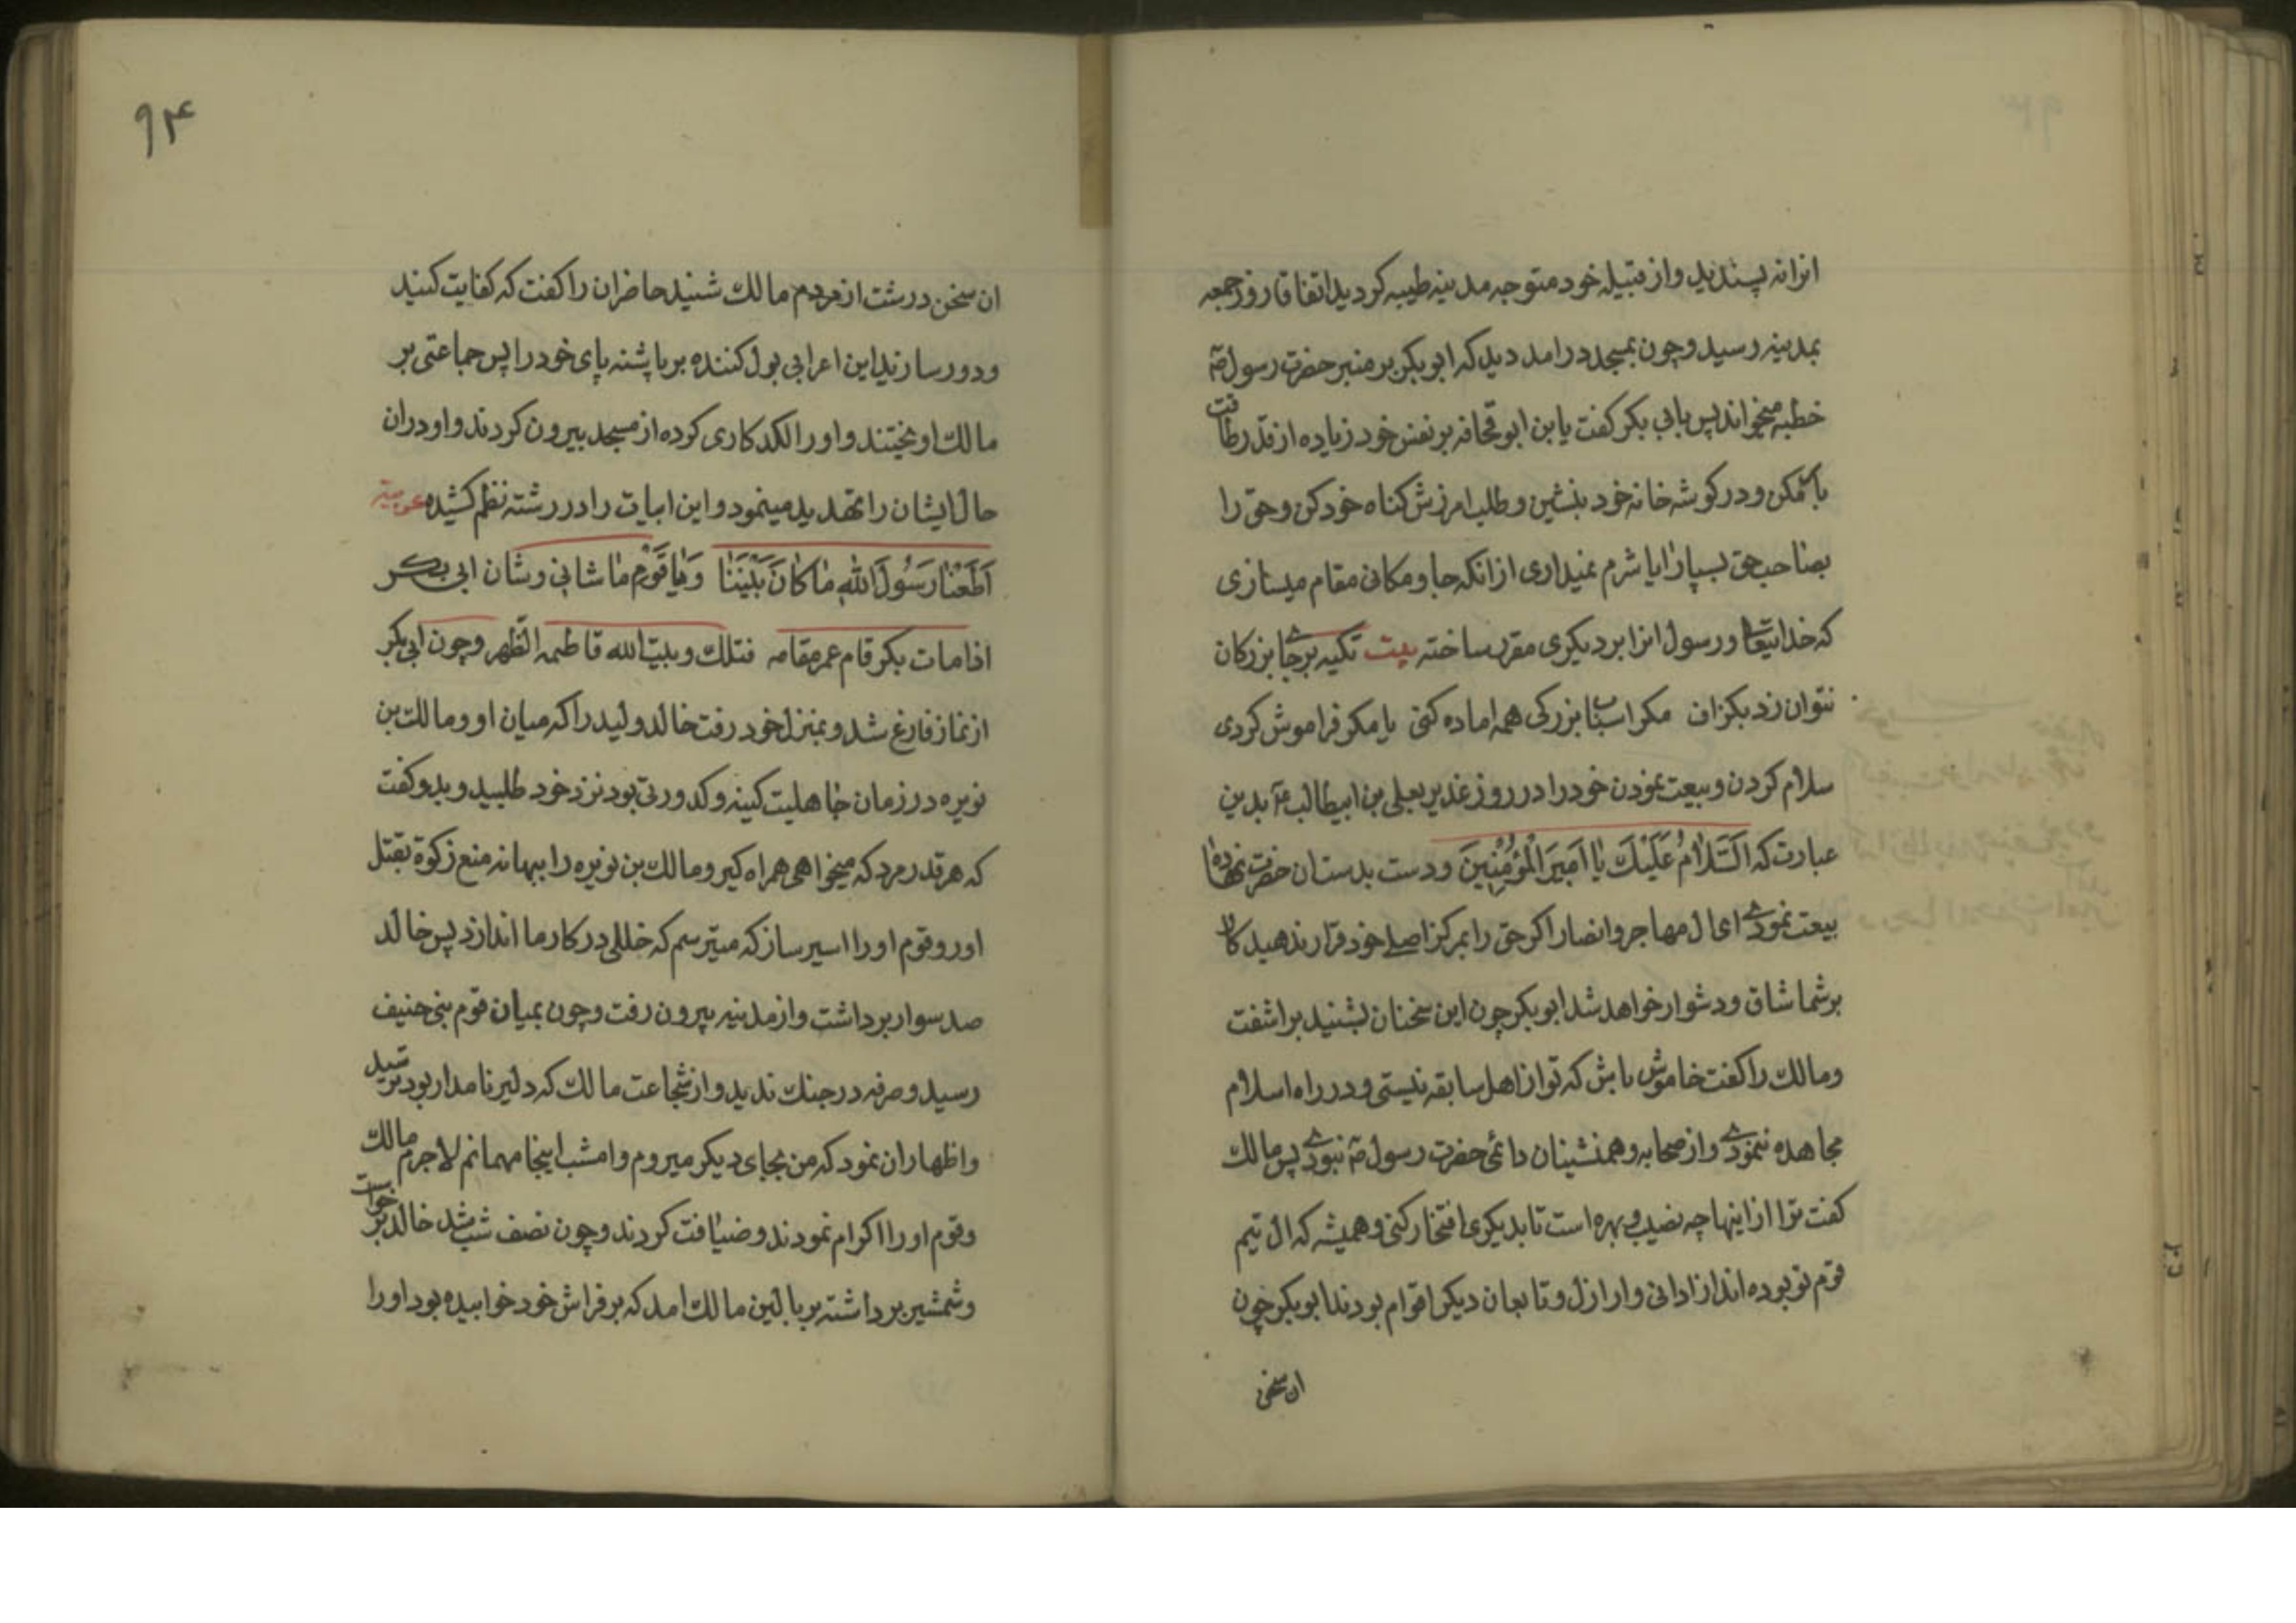 انرا نه پسندید واز قبیله خود متوجه مدینه طیبه کردید اتفاقا روز جمعه
بمدینه رسید وچون بمسجد درامد دید که ابوبکر بر منبر حضرت رسول صۤ
خطبه میخواند پس بابی بکر کفت یا بن ابو قحافه بر نفس خود زیاده از قدر طاقت
بار مکن و در کوشه خانه خود بنشین و طلب امرزش کناه خود کن وحق را
بصاحب حق بسپار ایا شرم نمیداری ازانکه جا و مکانی مقام میسازی
که خدایتعالی ورسول انرا بر دیکری مقرر ساخته بیت تکیه بر جای بزرکان
نتوان زد بکزاف مکر اسباب بزرکی همه اماده کنی یا مکر فراموش کردی
سلام کردن وبیعت نمودن خود را در روز غدیر بعلی بن ابیطالب عۤ بدین
عبارت که اَلسَّلامُ عَلَیْكَ یا اَمیرَ الْمُؤْمِنینَ ودست بدستان حضرت نهاده
بیعت نمودی ای ال مهاجر وانصار اکر حق را بمرکز اصلی خود قرار ندهید کار
بر شما شاق ودشوار خواهد شد ابوبکر چون این سخنان بشنید براشفت
ومالك را کفت خاموش باش که تو از اهل سابقه نیستی ودر راه اسلام
مجاهده ننمودی واز صحابه وهمنشینان دائمی حضرت رسول صۤ نبودی پس مالك
کفت ترا از اینها چه نصیب وبهره است تا بدیکری افتخار کنی وهمیشه که ال تیم
قوم تو بوده اند از ادانی وارازل وتابعان دیکر اقوام بودند ابوبکر چون
ان سخن
۹۴
ان سخن درشت از مردم مالك شنید حاضران را کفت که کفایت کنید
ودور سازید این اعرابی بول کننده بر پاشنه پای خود را پس جماعتی بر
مالك اویختند واورا لکدکاری کرده از مسجد بیرون کردند واو دران
حال ایشان را تهدید مینمود واین ابیات را در رشته نظم کشیده عربیة
اَطَعْنا رَسُولَ اللهِ ما کانَ بَیْنَنا وَیا قَوْمِ ما شانی وشان ابی بکر
اذا مات بکر قام عمر مقامه فتلك وبیت الله قاطمه الظهر وچون ابی بکر
از نماز فارغ شد وبمنزل خود رفت خالد ولید را که میان او ومالك بن
نویره در زمان جاهلیت کینه وکدورتی بود نزد خود طلبید وبدو کفت
که هر قدر مرد که میخواهی همراه کیر ومالك بن نویره را ببهانه منع زکوة بقتل
اور وقوم اورا اسیر ساز که میترسم که خللی در کار ما اندازد پس خالد
صد سوار برداشت واز مدینه بیرون رفت وچون بمیان قوم بنی حنیف
رسید وصرفه در جنك ندید واز شجاعت مالك که دلیر نامدار بود ترسید
واظهار ان نمود که من بجای دیکر میروم وامشب اینجا مهمانم لاجرم مالك
وقوم اورا اکرام نمودند وضیافت کردند وچون نصف شب شد خالد برخواست
وشمشیر برداشته بر بالین مالك امد که بر فراش خود خوابیده بود اورا